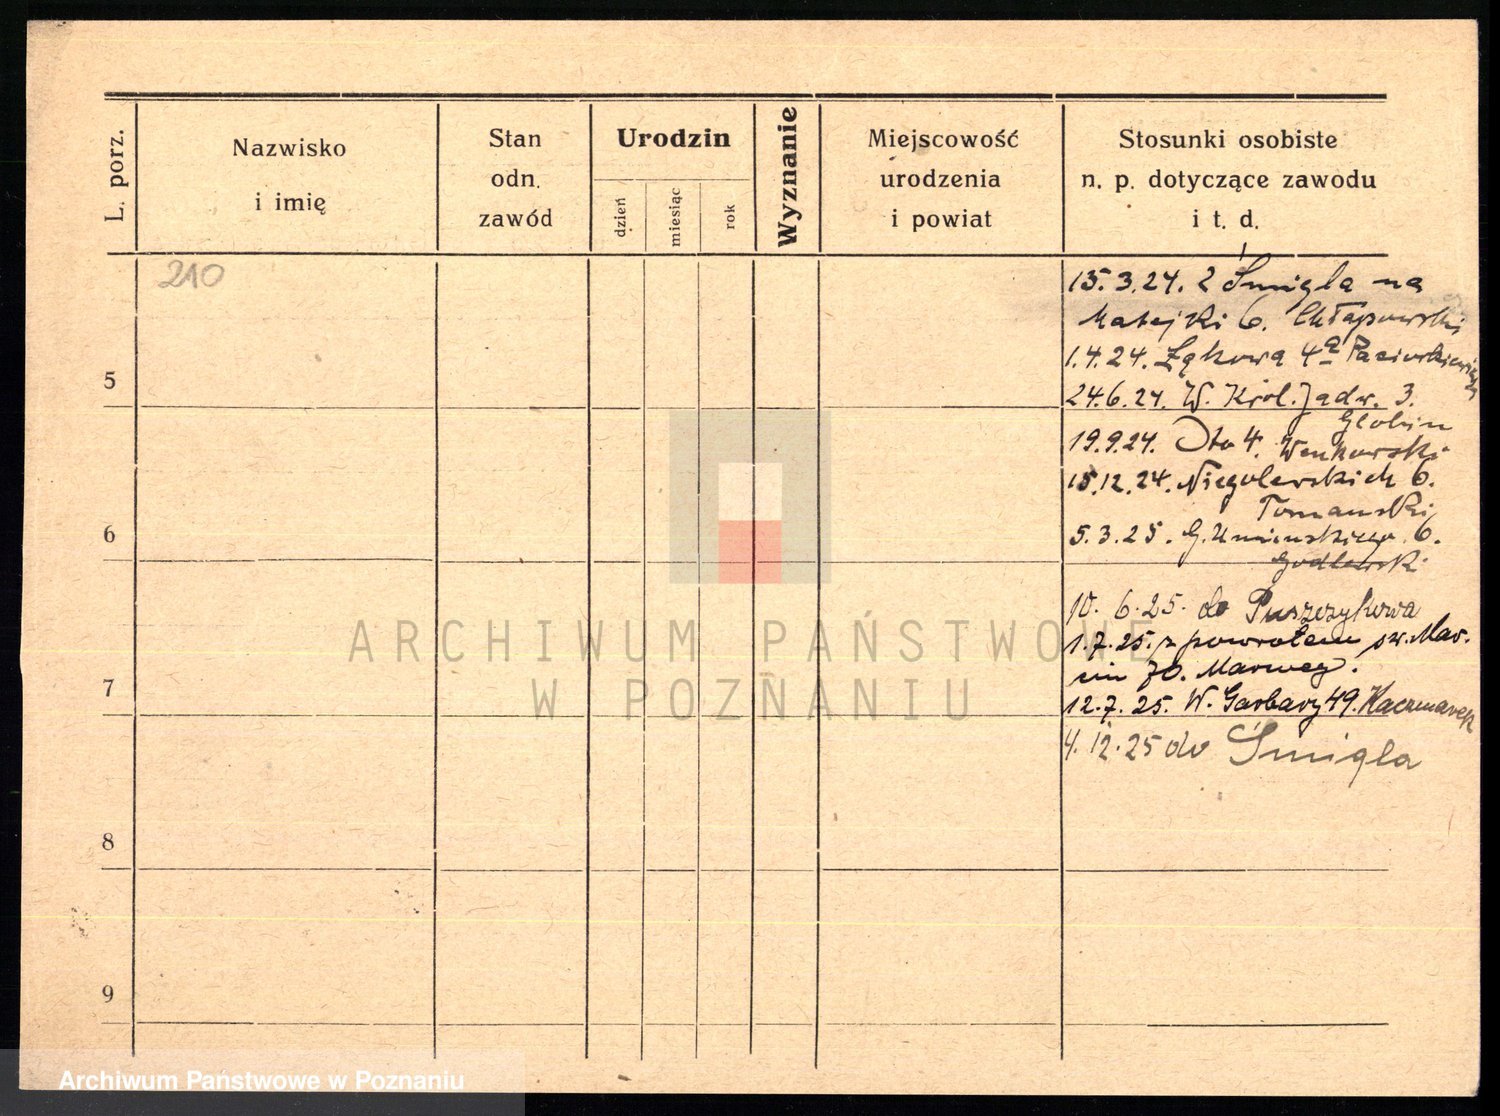 L. porz.
Nazwisko
i imię
Stan
odn.
zawód
Urodzin
dzień
miesiąc
rok
Wyznanie
Miejscowość
urodzenia
i powiat
Stosunki osobiste
n. p. dotyczące zawodu
i t. d.
210
15. 3. 24. z Śmigla na
Matejki 6. Chłapowski
1. 4. 24. Łąkowa 4a
24. 6. 24. W. Król. Jadw. 3.
19. 9. 24. 4.
15. 12. 24. Niegolewskich 6.
Tomanski
5. 3. 25. G. Umińskiego 6.
Godlewsk
10. 6. 25. do Puszczykowa
1. 7. 25. z powrotem sw. Mar-
cin 70.
12. 7. 25. W. Garbary 49. Kaczmarek
4. 12. 25 do Śmigla
5
6
7
8
9
ARCHIWUM PAŃSTWOWE
W POZNANIU
Archiwum Państwowe w Poznaniu